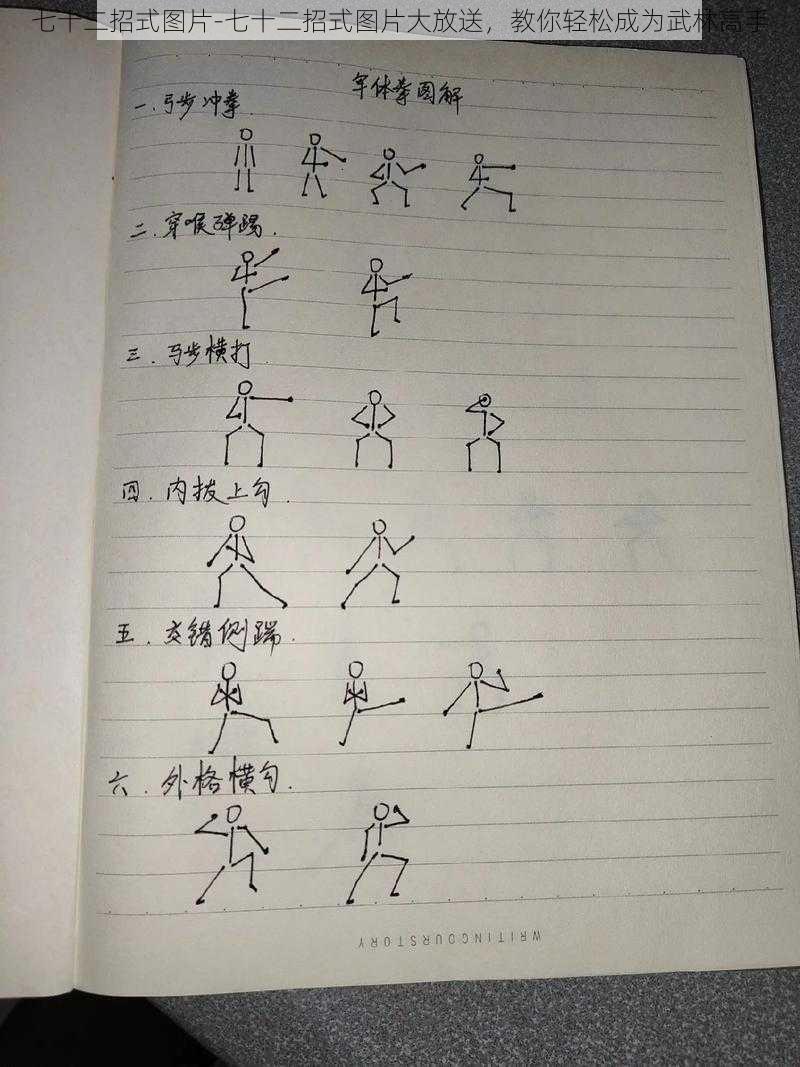 七十二招式图片-七十二招式图片大放送，教你轻松成为武林高手
军体拳图解
一.弓步冲拳.
二.穿喉弹踢.
三.马步横打
四.内拨上勾.
五.交错侧踹.
六.外格横勾.
WRITINGOURSTORY